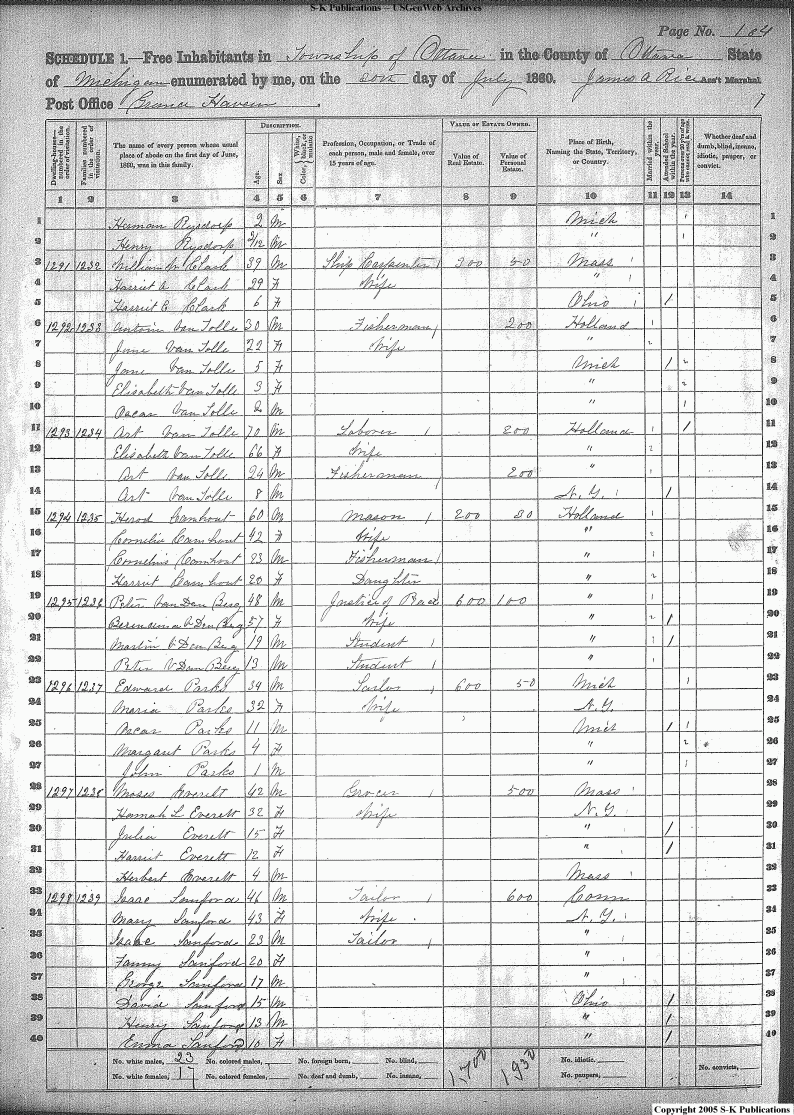 S-K Publications – USGenWeb Archives
Page No. 104
SCHEDULE 1.—Free Inhabitants in Township of Ottawa in the County of Ottawa State
of Michigan enumerated by me, on the 20th day of July 1860. James A Rice Ass't Marshal
Post Office Grand Haven
7
Dwelling-houses—numbered in the order of visitation.
Families numbered in the order of visitation.
The name of every person whose usual place of abode on the first day of June, 1860, was in this family.
DESCRIPTION.
Age.
Sex.
Color, White, black, or mulatto.
Profession, Occupation, or Trade of each person, male and female, over 15 years of age.
VALUE OF ESTATE OWNED.
Value of Real Estate.
Value of Personal Estate.
Place of Birth, Naming the State, Territory, or Country.
Married within the year.
Attended School within the year.
Persons over 20 y'rs of age who cannot read & write.
Whether deaf and dumb, blind, insane, idiotic, pauper, or convict.
1 2 3 4 5 6 7 8 9 10 11 12 13 14
1 Herman Rysdorp 2 M Mich 1
2 Henry Rysdorp 2/12 M " 2
3 1291 1232 William Clark 39 M Ship Carpenter 300 50 Mass 3
4 Harriet A Clark 29 F Wife " 4
5 Harriet E Clark 6 F Ohio / 5
6 1292 1233 Antoin Van Tolle 30 M Fisherman 200 Holland 6
7 Jane Van Tolle 22 F Wife " 7
8 Jane Van Tolle 5 F Mich / 8
9 Elisabeth Van Tolle 3 F " 9
10 Oscar Van Tolle 2 M " 10
11 1293 1234 Art Van Tolle 70 M Laborer 200 Holland 11
12 Elisabeth Van Tolle 66 F Wife " 12
13 Art Van Tolle 24 M Fisherman 200 " 13
14 Art Van Tolle 8 M N.Y. / 14
15 1294 1235 Camhout 60 M Mason 200 30 Holland 15
16 Cornelia Camhout 42 F Wife " 16
17 Cornelius Camhout 23 M Fisherman " 17
18 Harriet Camhout 20 F Daughter " 18
19 1295 1236 Peter Van Den Berg 48 M Justice of Peace 600 100 " 19
20 V Den Berg 57 F Wife " / 20
21 Martin V Den Berg 19 M Student " / 21
22 Peter V Den Berg 13 M Student " 22
23 1296 1237 Edward Parks 34 M Sailor 600 50 Mich 23
24 Maria Parks 32 F Wife N.Y. 24
25 Oscar Parks 11 M Mich / 25
26 Margaret Parks 4 F " 26
27 John Parks 1 M " 27
28 1297 1238 Moses Everett 42 M Grocer 500 Mass 28
29 Hannah L Everett 32 F Wife N.Y. 29
30 Julia Everett 15 F " / 30
31 Harriet Everett 12 F " / 31
32 Herbert Everett 4 M Mass 32
33 1298 1239 Isaac Sanford 46 M Tailor 600 Conn 33
34 Mary Sanford 43 F Wife N.Y. 34
35 Isaac Sanford 23 M Tailor " 35
36 Fanny Sanford 20 F " 36
37 George Sanford 17 M " 37
38 David Sanford 15 M Ohio / 38
39 Henry Sanford 13 M " / 39
40 Emma Sanford 10 F " / 40
No. white males, 23 No. colored males, No. foreign born, No. blind, 1700 1930 No. idiotic, No. convicts,
No. white females, 17 No. colored females, No. deaf and dumb, No. insane, No. paupers,
Copyright 2005 S-K Publications